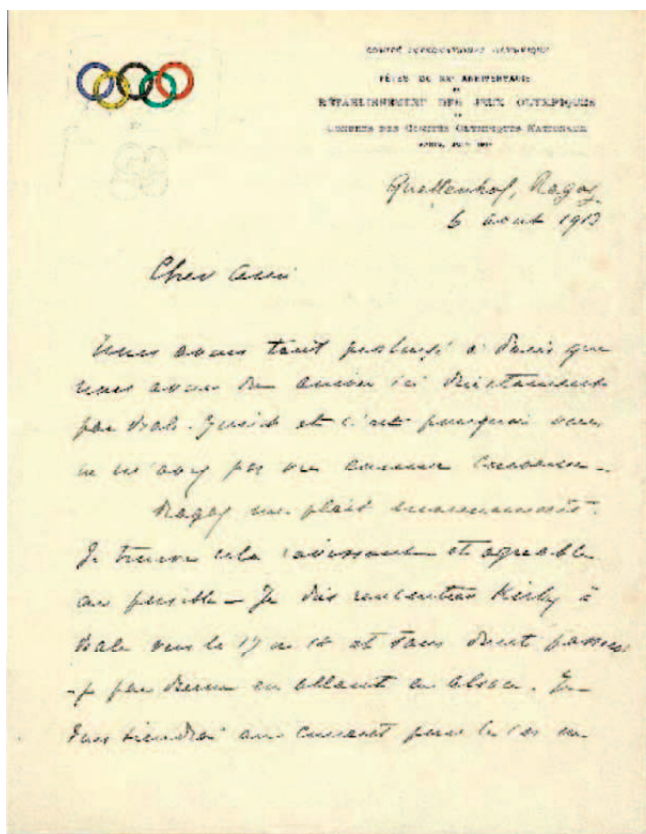 COMITÉ INTERNATIONAL OLYMPIQUE
FÊTES DU XXᵉ ANNIVERSAIRE
DU
RÉTABLISSEMENT DES JEUX OLYMPIQUES
ET
CONGRÈS DES COMITÉS OLYMPIQUES NATIONAUX
PARIS, JUIN 1914
Quellenhof, Ragaz
6 aout 1913
Cher ami
Nous avons tant prolongé à Paris que
nous avons du arriver ici directement
par Bale-Zurich et c'est pourquoi vous
ne m'avez pas vu comme
Ragaz me plait énormément.
Je trouve cela ravissant et agréable
au possible - Je dois rencontrer Kirby à
Bale vers le 17 ou 18 et sans doute passerai
-je par Berne en allant en Alsace. Je
vous tiendrai au courant pour le cas où